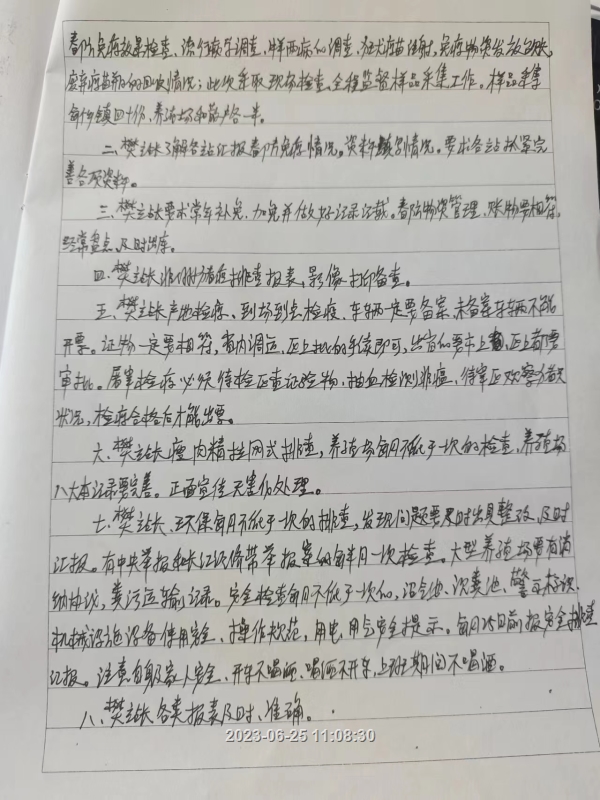 春防免疫效果检查、流行病学调查、牛羊两病的调查、狂犬疫苗注射,免疫物资发放台账、
废弃疫苗瓶的回收情况;此次采取现场检查、全程监督样品采集工作。样品采集
每乡镇四十份、养殖场和散户各一半。
二、樊站长了解各站汇报春防免疫情况。资料情况。要求各站抓紧完
善各项资料。
三、樊站长要求常年补免,加免并做好记录记载。春防物资管理,账物要相符,
经常盘点,及时出库。
四、樊站长非洲猪瘟排查报表,影像打印备查。
五、樊站长产地检疫、到场到点检疫,车辆一定要备案,未备案车辆不能
开票。证物一定要相符,省内调运,正上批的手续即可,出省的要市上,正上都要
审批。屠宰检疫必须待检正查证验物,抽血检测非瘟,待宰正观察
状况,检疫合格后才能出票。
六、樊站长瘦肉精拉网式排查,养殖场每月不低于一次的检查,养殖场
八大本记录要完善。正面宣传无害化处理。
七、樊站长、环保每月不低于一次的排查,发现问题要及时出具整改,及时
汇报。有中央举报和长江经济带举报案例每半月一次检查。大型养殖场要有消
纳协议,粪污运输记录。安全检查每月不低于一次的,沼气池、沉粪池、警示标识、
机械设施设备使用安全、操作规范,用电用气安全提示。每月25日前报安全排查
汇报。注意自身及家人安全、开车不喝酒、喝酒不开车,上班期间不喝酒。
八、樊站长各类报表及时、准确。
2023-06-25 11:08:30